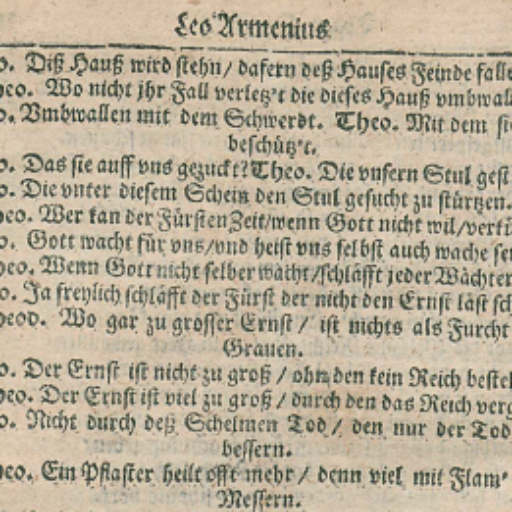 Leo Armenius
o. Diß Hauß wird stehn/ dafern deß Hauses Feinde falle
heo. Wo nicht jhr Fall verletz't die dieses Hauß vmbwall
o. Vmbwallen mit dem Schwerdt. Theo. Mit dem sie
beschütz't.
o. Das sie auff vns gezuckt? Theo. Die vnsern Stul gest
o. Die vnter diesem Schein den Stul gesucht zu stürtzen.
heo. Wer kan der Fürsten Zeit/wenn Gott nicht wil/verkü
o. Gott wacht für vns/vnd heist vns selbst auch wache sei
heo. Wenn Gott nicht selber wacht/schläfft jeder Wächter
o. Ja freylich schläfft der Fürst der nicht den Ernst läst sch
heod. Wo gar zu grosser Ernst/ ist nichts als Furcht
Grauen.
o. Der Ernst ist nicht zu groß/ ohn den kein Reich besteh
heo. Der Ernst ist viel zu groß/ durch den das Reich verg
o. Nicht durch deß Schelmen Tod/ den nur der Tod
bessern.
heo. Ein Pflaster heilt offt mehr/ denn viel mit Flam'
Messern.